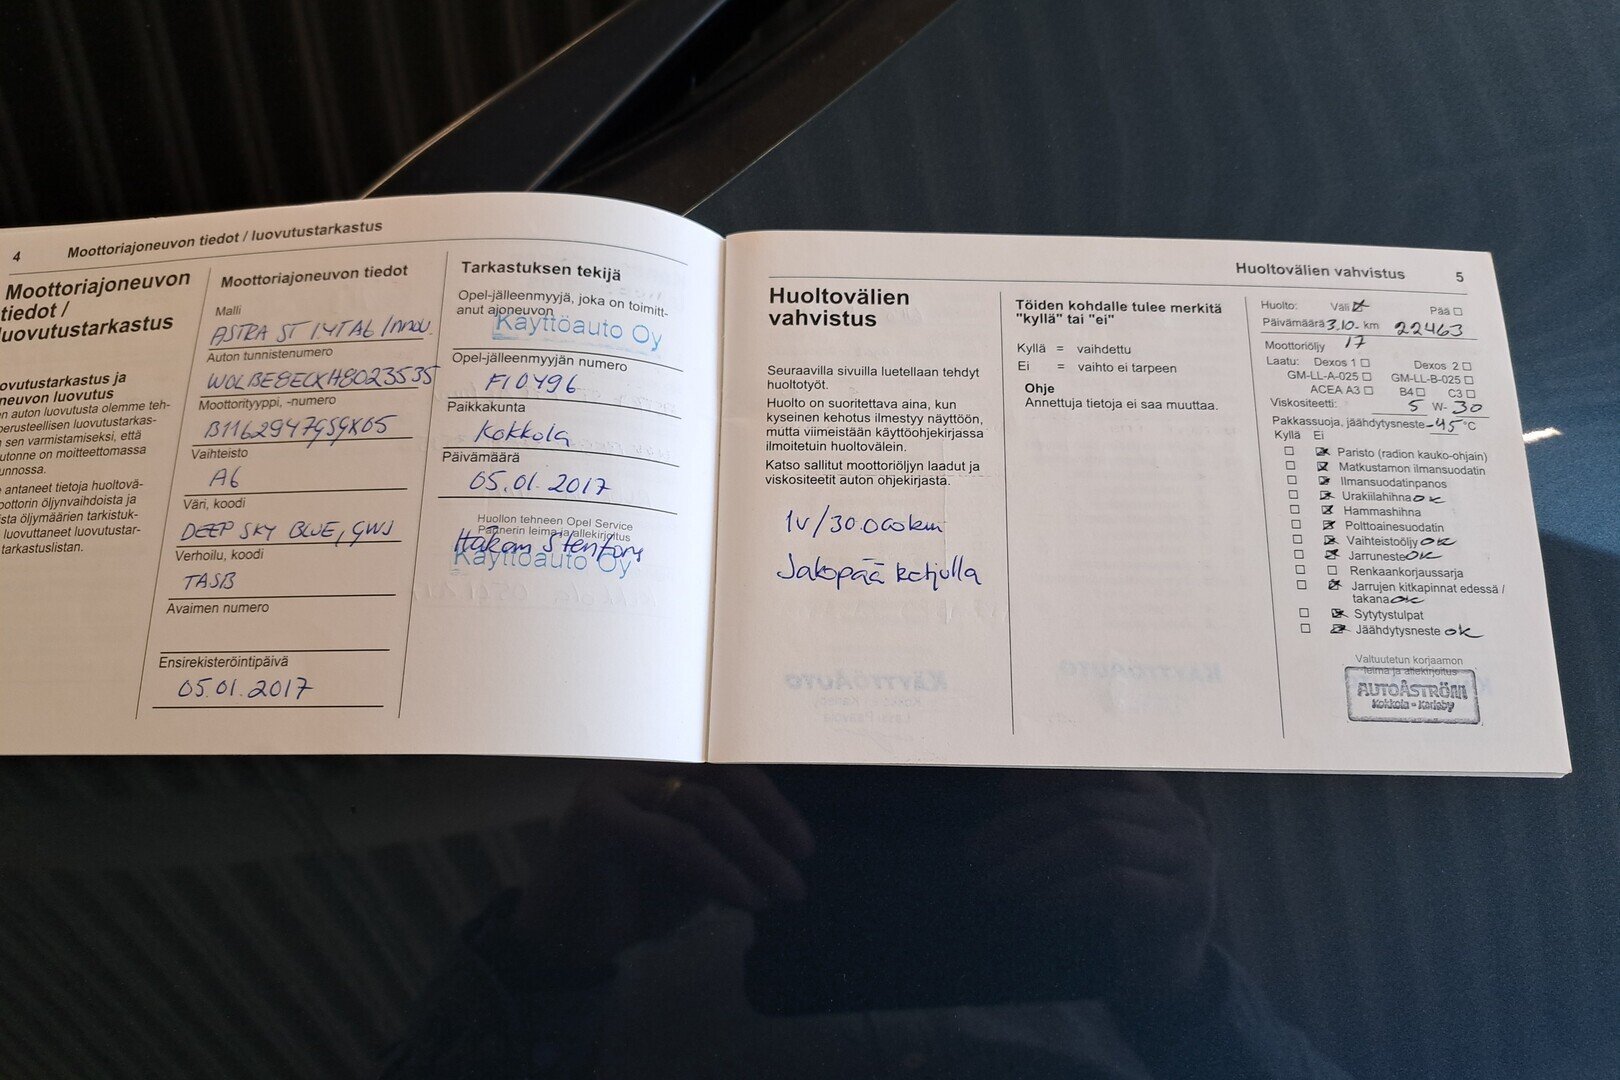 4
Moottoriajoneuvon tiedot / luovutustarkastus
Moottoriajoneuvon
tiedot /
luovutustarkastus
ovutustarkastus ja
neuvon luovutus
en auton luovutusta olemme teh-
perusteellisen luovutustarkas-
n sen varmistamiseksi, että
utonne on moitteettomassa
unnossa.
e antaneet tietoja huoltovä-
oottorin öljynvaihdoista ja
ista öljymäärien tarkistuk-
luovuttaneet luovutustar-
tarkastuslistan.
Moottoriajoneuvon tiedot
Malli
ASTRA ST 1.4T A6 Innov.
Auton tunnistenumero
W0LBE8ECXH8023535
Moottorityyppi, -numero
Vaihteisto
A6
Väri, koodi
DEEP SKY BLUE, GWJ
Verhoilu, koodi
TASB
Avaimen numero
Ensirekisteröintipäivä
05.01.2017
Tarkastuksen tekijä
Opel-jälleenmyyjä, joka on toimitt-
anut ajoneuvon
Käyttöauto Oy
Opel-jälleenmyyjän numero
FI0496
Paikkakunta
Kokkola
Päivämäärä
05.01.2017
Huollon tehneen Opel Service
Partnerin leima ja allekirjoitus
Käyttöauto Oy
Huoltovälien vahvistus
5
Huoltovälien
vahvistus
Seuraavilla sivuilla luetellaan tehdyt
huoltotyöt.
Huolto on suoritettava aina, kun
kyseinen kehotus ilmestyy näyttöön,
mutta viimeistään käyttöohjekirjassa
ilmoitetuin huoltovälein.
Katso sallitut moottoriöljyn laadut ja
viskositeetit auton ohjekirjasta.
1v/30.000km
Jakopää ketjulla
Töiden kohdalle tulee merkitä
"kyllä" tai "ei"
Kyllä = vaihdettu
Ei = vaihto ei tarpeen
Ohje
Annettuja tietoja ei saa muuttaa.
Huolto: Väli ☒ Pää ☐
Päivämäärä 3.10- km 22463
Moottoriöljy 17
Laatu: Dexos 1 ☐ Dexos 2 ☐
GM-LL-A-025 ☐ GM-LL-B-025 ☐
ACEA A3 ☐ B4 ☐ C3 ☐
Viskositeetti: 5 W- 30
Pakkassuoja, jäähdytysneste -45 °C
Kyllä Ei
☐ ☒ Paristo (radion kauko-ohjain)
☐ ☒ Matkustamon ilmansuodatin
☐ ☒ Ilmansuodatinpanos
☐ ☒ Urakiilahihna OK
☐ ☒ Hammashihna
☐ ☒ Polttoainesuodatin
☐ ☒ Vaihteistoöljy OK
☐ ☒ Jarruneste OK
☐ ☐ Renkaankorjaussarja
☐ ☒ Jarrujen kitkapinnat edessä /
takana OK
☐ ☒ Sytytystulpat
☐ ☒ Jäähdytysneste OK
Valtuutetun korjaamon
leima ja allekirjoitus
AUTOÅSTRÖM
Kokkola - Karleby